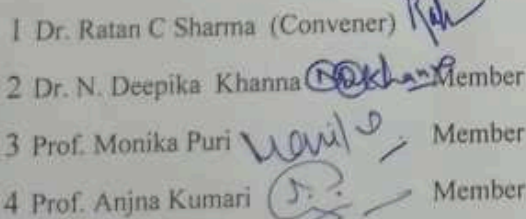 1 Dr. Ratan C Sharma (Convener)
2 Dr. N. Deepika Khanna Member
3 Prof. Monika Puri Member
4 Prof. Anjna Kumari Member